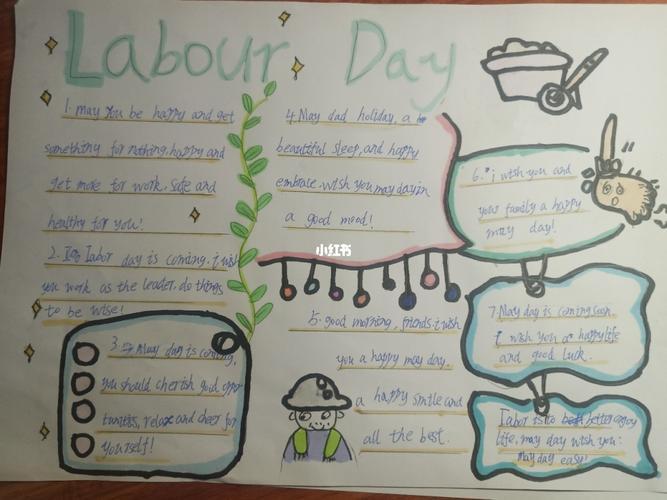 Labour Day
1. may you be happy and get
something for nothing, happy and
get more for work, safe and
healthy for you!
2. Labor day is coming. i wish
you work as the leader, do things
to be wise!
3. May day is coming,
you should cherish good oppor
tunities, relax and cheer for
yourself!
4. May dad holiday, a
beautiful sleep, and happy
embrate. wish you may day in
a good mood!
小红书
5. good morning, friends. i wish
you a happy may day.
a happy smile and
all the best.
6. i wish you and
your family a happy
may day!
7. May day is coming soon.
i wish you a happy life
and good luck.
Labor is to better enjoy
life, may day wish you:
may day easy!